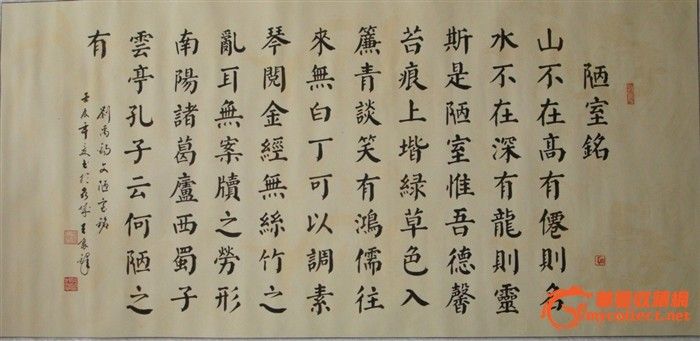 陋室銘
山不在高有僊則名
水不在深有龍則靈
斯是陋室惟吾德馨
苔痕上堦緑草色入
簾青談笑有鴻儒往
來無白丁可以調素
琴閲金經無絲竹之
亂耳無案牘之勞形
南陽諸葛廬西蜀子
雲亭孔子云何陋之
有
劉禹錫文陋室銘
壬辰年
華夏收藏網
mycollect.net